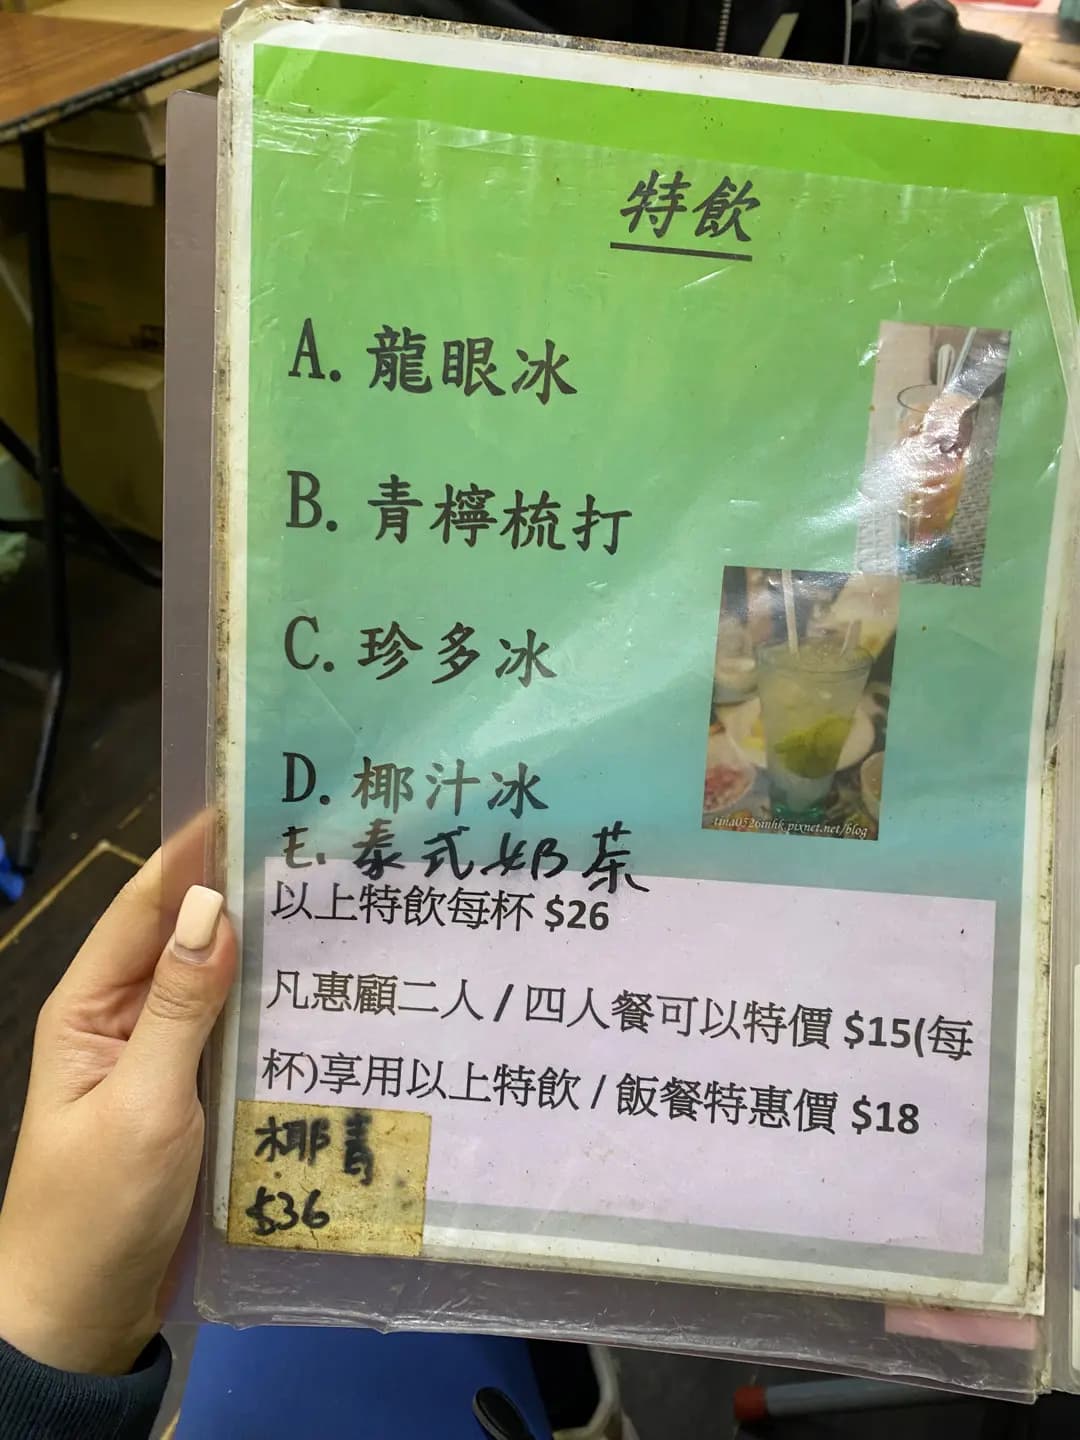 特飲
A. 龍眼冰
B. 青檸梳打
C. 珍多冰
D. 椰汁冰
E. 泰式奶茶
tina0526inhk.pixnet.net/blog
以上特飲每杯 $26
凡惠顧二人 / 四人餐可以特價 $15(每
杯)享用以上特飲 / 飯餐特惠價 $18
椰青
$36